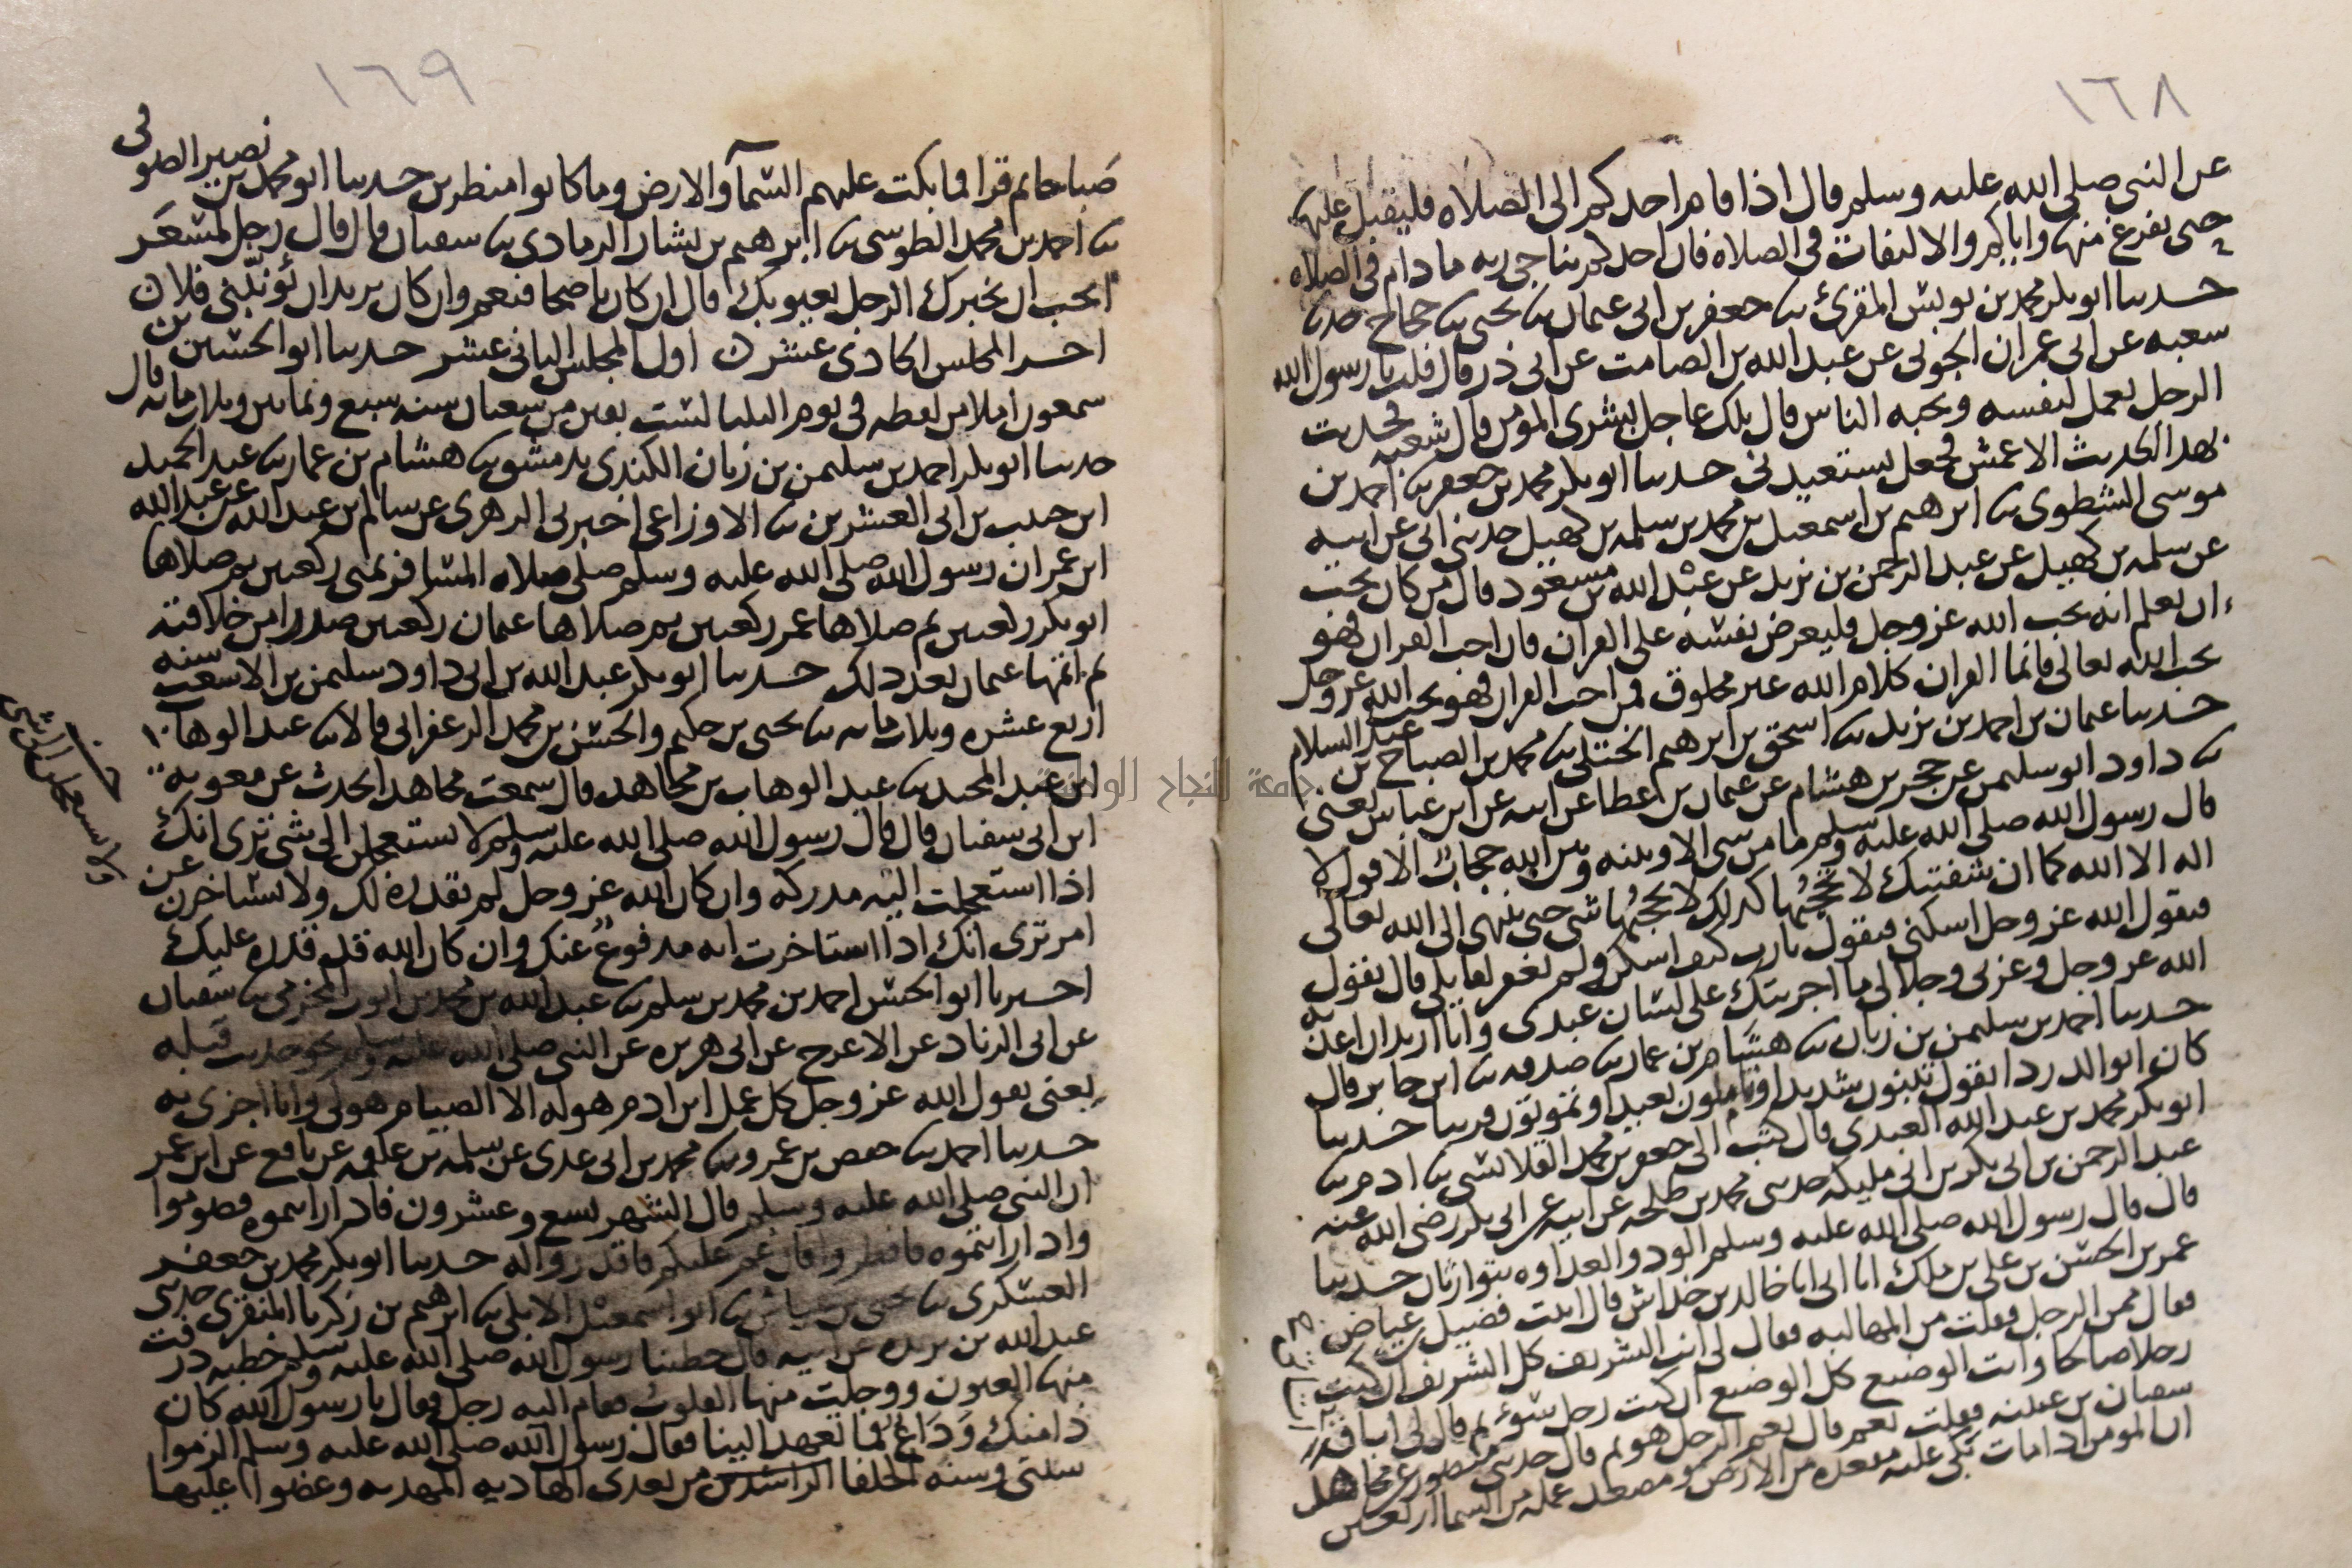 ١٦٨
عن النبي صلى الله عليه وسلم قال اذا قام احدكم الى الصلاه فليقبل عليها
حتى يفرغ منها واياكم والالتفات في الصلاه فان احدكم يناجي ربه ما دام في الصلاه
حدثنا ابو بكر محمد بن يونس المقرئ نا جعفر بن ابي عثمان نا يحيى نا حجاج حدثنا
شعبه عن ابي عمران الجوني عن عبد الله بن الصامت عن ابي ذر قال قلت يا رسول الله
الرجل يعمل لنفسه ويحبه الناس قال تلك عاجل بشرى المومن قال شعبه فحدثت
بهذا الحديث الاعمش فجعل يستعيدني حدثنا ابو بكر محمد بن جعفر نا احمد بن
موسى الشطوي نا ابرهيم بن اسمعيل بن محمد بن سلمه بن كهيل حدثني ابي عن ابيه
عن سلمه بن كهيل عن عبد الرحمن بن يزيد عن عبد الله بن مسعود قال من كان يحب
ان يعلم انه يحب الله عز وجل فليعرض نفسه على القران فان احب القران فهو
يحب الله تعالى فانما القران كلام الله غير مخلوق فمن احب القران فهو يحب الله عز وجل
حدثنا عثمان بن احمد بن يزيد نا اسحق بن ابرهيم الختلي نا محمد بن الصباح بن عبد السلام
نا داود ابو سليمن عن حجر بن هشام عن عثمان بن عطا عن ابيه عن ابن عباس يعني
قال رسول الله صلى الله عليه وسلم ما من شي الا وبينه وبين الله حجاب الا قول لا
اله الا الله كما ان شفتيك لا تحجبها كذلك لا يحجبها شي حتى ينتهي الى الله تعالى
فيقول الله عز وجل اسكني فيقول يا رب كيف اسكن ولم تغفر لقايلي قال يقول
الله عز وجل وعزتي وجلالي ما اجريتك على لسان عبدي وانا اريد ان اعذبه
حدثنا احمد بن سليمن بن زبان نا هشام بن عمار نا صدقه نا ابن جابر قال
كان ابو الدردا يقول تبنون شديدا وتاملون بعيدا وتموتون قريبا حدثنا
ابو بكر محمد بن عبد الله العبدي قال كتب الى جعفر بن محمد القلانسي نا ادم نا
عبد الرحمن بن ابي بكر بن ابي مليكه حدثني محمد بن طلحه عن ابيه عن ابي بكر رضي الله عنه
قال قال رسول الله صلى الله عليه وسلم الود والعداوه يتوارثان حدثنا
عمر بن الحسن بن علي بن ملك انا ابي انا خالد بن خداش قال اتيت فضيل بن عياض
فقال ممن الرجل فقلت من المهالبه فقال لي انت الشريف كل الشريف ان كنت
رجلا صالحا وانت الوضيع كل الوضيع ان كنت رجل سوء ثم قال لي
سفيان بن عيينه فقلت نعم قال نعم الرجل هو ثم قال حدثني منصور عن مجاهد
ان المومن اذا مات تبكي عليه مقعده من الارض ومصعد عمله من السما اربعين
١٦٩
صباحا ثم قرا فما بكت عليهم السمآ والارض وما كانوا منظرين حدثنا ابو محمد بن نصير الصوفي
نا احمد بن محمد الطوسي نا ابرهيم بن بشار الرمادي نا سفيان قال قال رجل لمسعر
اتحب ان يخبرك الرجل بعيوبك قال ان كان ناصحا فنعم وان كان يريد ان يونبني فلا ن
اخر المجلس الحادي عشر ن اول المجلس الثاني عشر حدثنا ابو الحسين بن
سمعون املا من لفظه في يوم الثلثا لست بقين من شعبان سنه سبع وثمانين وثلاثمائه قال
حدثنا ابو بكر احمد بن سليمن بن زبان الكندي بدمشق نا هشام بن عمار نا عبد الحميد
ابن حبيب بن ابي العشرين نا الاوزاعي اخبرني الزهري عن سالم ابن عبد الله عن عبد الله
ابن عمر ان رسول الله صلى الله عليه وسلم صلى صلاه المسافر بمنى ركعتين ثم صلاها
ابو بكر ركعتين ثم صلاها عمر ركعتين ثم صلاها عثمان ركعتين صدرا من خلافته
ثم اتمها عثمان بعد ذلك حدثنا ابو بكر عبد الله بن ابي داود سليمن بن الاشعث سنه
اربع عشره وثلاثمائه نا يحيى بن حكيم والحسن بن محمد الزعفراني قالا نا عبد الوهاب
ابن عبد المجيد نا عبد الوهاب بن مجاهد قال سمعت مجاهدا يحدث عن معويه
ابن ابي سفيان قال قال رسول الله صلى الله عليه وسلم لا تستعجلن الى شي ترى انك
اذا استعجلت اليه مدركه وان كان الله عز وجل لم يقدر ذلك ولا تستاخرن عن
امر ترى انك اذا استاخرت انه مدفوع عنك وان كان الله قد قدره عليك
اخبرنا ابو الحسن احمد بن محمد بن سلم نا عبد الله بن محمد بن ايوب المخرمي نا سفيان
عن ابي الزناد عن الاعرج عن ابي هريره عن النبي صلى الله عليه وسلم نحو حديث قبله
يعني يقول الله عز وجل كل عمل ابن ادم هو له الا الصيام هو لي وانا اجزي به
حدثنا احمد نا حفص بن عمرو نا محمد بن ابي عدي عن سلمه بن علقمه عن نافع عن ابن عمر
ان النبي صلى الله عليه وسلم قال الشهر تسع وعشرون فاذا رايتموه فصوموا
واذا رايتموه فافطروا فان غم عليكم فاقدروا له حدثنا ابو بكر محمد بن جعفر
العسكري نا يحيى بن نا ابو اسمعيل الابلي نا ابرهيم بن زكريا المنقري حدثني
عبد الله بن بريده عن ابيه قال خطبنا رسول الله صلى الله عليه وسلم خطبه ذرفت
منها العيون ووجلت منها القلوب فقام اليه رجل فقال يا رسول الله كان
ذا منك وداع فما تعهد الينا فقال رسول الله صلى الله عليه وسلم الزموا
سنتي وسنه الخلفا الراشدين من بعدي الهاديه المهديه وعضوا عليها
جامعة النجاح الوطنية